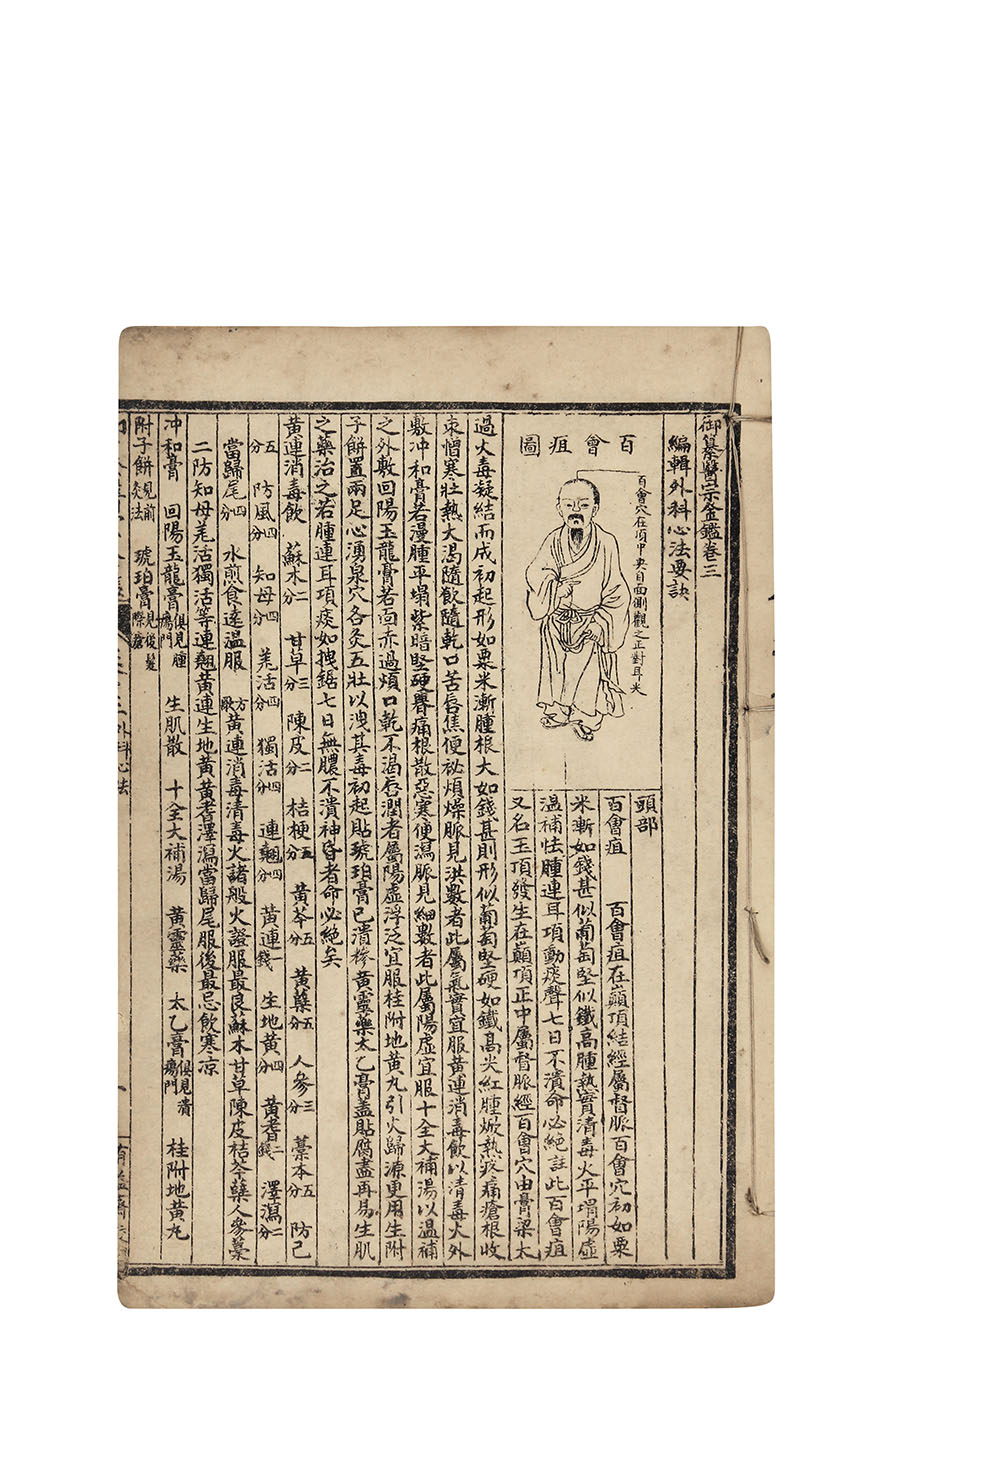 御纂醫宗金鑑卷三
編輯外科心法要訣
百會疽圖
百會穴在頂中央自面側觀之正對耳尖
頭部
百會疽　百會疽在巔頂結經屬督脈百會穴初如粟
米漸如錢甚似葡萄堅似鐵高腫熱實清毒火平塌陽虛
溫補怯腫連耳項動痰聲七日不潰命必絕註此百會疽
又名玉頂發生在巔頂正中屬督脈經百會穴由膏粱太
過火毒凝結而成初起形如粟米漸腫根大如錢甚則形似葡萄堅硬如鐵高尖紅腫焮熱疼痛瘡根收
束憎寒壯熱大渴隨飲隨乾口苦唇焦便祕煩燥脈見洪數者此屬氣實宜服黃連消毒飲以清毒火外
敷冲和膏若漫腫平塌紫暗堅硬㿈痛根散惡寒便瀉脈見細數者此屬陽虛宜服十全大補湯以溫補
之外敷回陽玉龍膏若面赤過煩口乾不渴唇潤者屬陽虛浮泛宜服桂附地黃丸引火歸源更用生附
子餅置兩足心湧泉穴各灸五壯以洩其毒初起貼琥珀膏已潰摻黃靈藥太乙膏蓋貼腐盡再易生肌
之藥治之若腫連耳項痰如拽鋸七日無膿不潰神昏者命必絕矣
黃連消毒飲　蘇木二分　甘草三分　陳皮二分　桔梗五分　黃芩五分　黃蘗五分　人參三分　藁本五分　防己
五分　防風四分　知母四分　羌活四分　獨活四分　連翹四分　黃連一錢　生地黃四分　黃耆二錢　澤瀉二分
當歸尾四分　水煎食遠溫服　方歌　黃連消毒清毒火諸般火證服最良蘇木甘草陳皮桔芩蘗人參藁
二防知母羌活獨活等連翹黃連生地黃黃耆澤瀉當歸尾服後最忌飲寒凉
冲和膏　回陽玉龍膏俱見腫瘍門　生肌散　十全大補湯　黃靈藥　太乙膏俱見潰瘍門　桂附地黃丸
附子餅見前灸法　琥珀膏見後髮際瘡